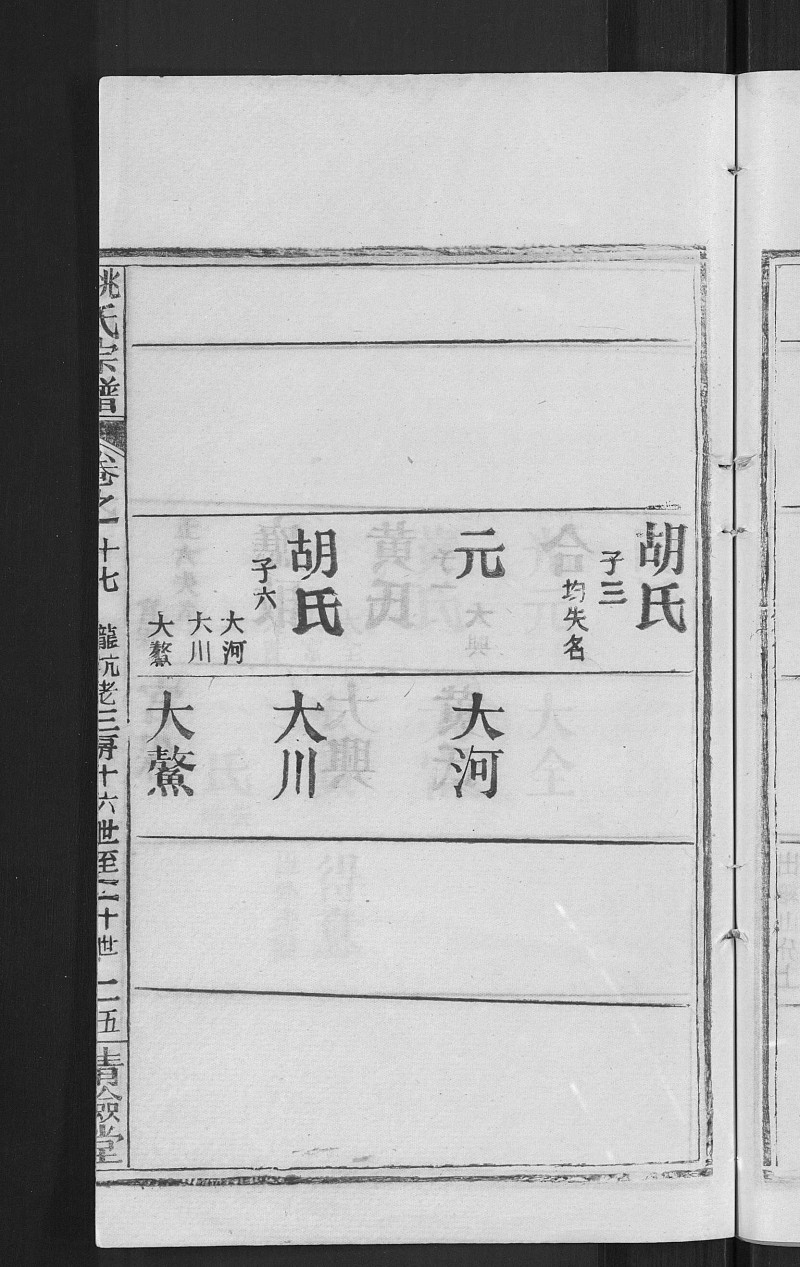 胡氏
子三
均失名
元
胡氏
子六
大河
大川
大鰲
大河
大川
大鰲
姚氏宗譜
卷之一十七
龍坑老三房十六世至二十世
二五
清儉堂